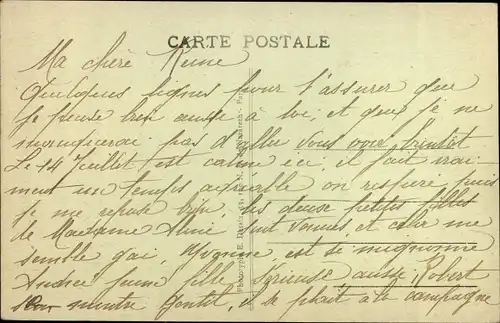 CARTE POSTALE
Ma chère Reine
Quelques lignes pour t'assurer que
je pense bien aussi à toi, et que je ne
manquerai pas d'aller vous voir bientôt
Le 14 Juillet est calme ici, il fait vrai-
ment un temps agréable on respire puis
je me repose bien, les deux petites filles
de Madame sont venues et cela me
semble gai, Yvonne, est si mignonne
Andrée jeune fille sérieuse aussi. Robert
montre gentil, il se plait à la campagne